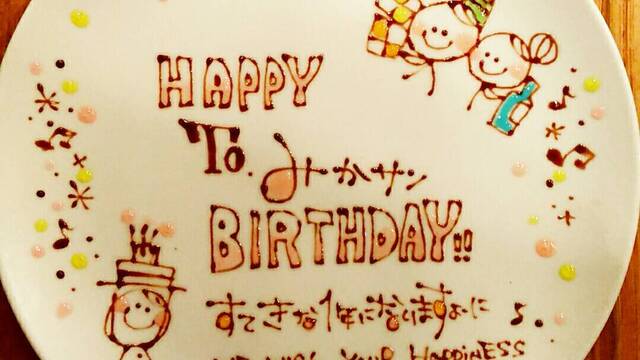 HAPPY
To. みかサン
BIRTHDAY!!
すてきな1年になりますように
YOUR HAPPINESS